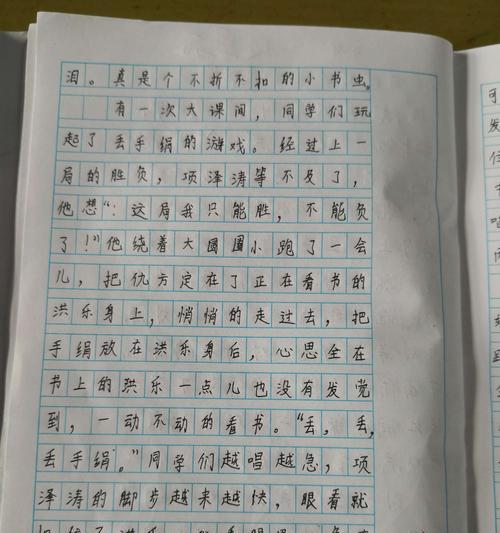 泪。真是个不折不扣的小书虫。
有一次大课间，同学们玩
起了丢手绢的游戏。经过上一
局的胜负，项泽涛等不及了，
他想“：这局我只能胜，不能负
了！”他绕着大圆圈小跑了一会
儿，把仇方定在了正在看书的
洪乐身上，悄悄的走过去，把
手绢放在洪乐身后，心思全在
书上的洪乐一点儿也没有发觉
到，一动不动的看书。“丢，丢，
丢手绢。”同学们越唱越急，项
泽涛的脚步越来越快，眼看就